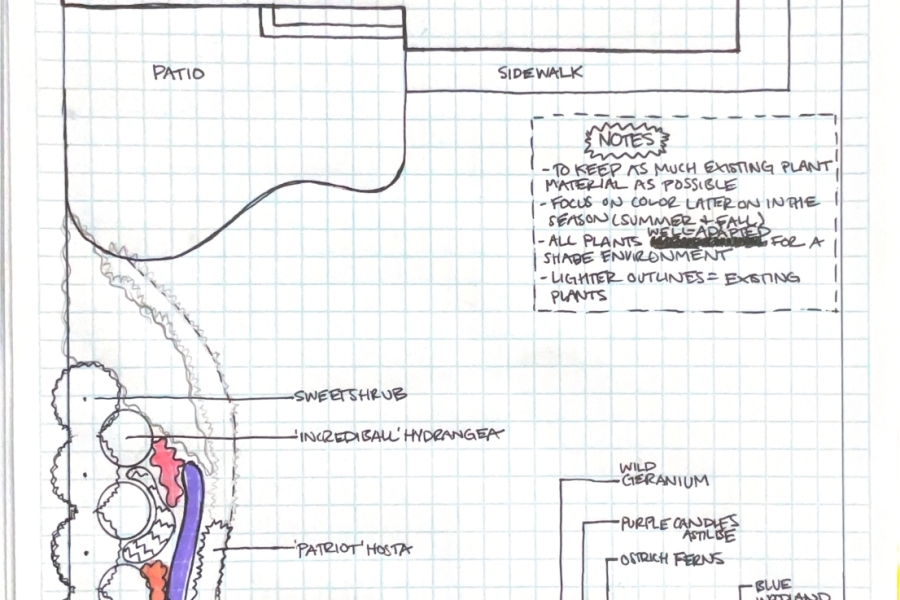 PATIO
SIDEWALK
NOTES
-TO KEEP AS MUCH EXISTING PLANT
MATERIAL AS POSSIBLE
-FOCUS ON COLOR LATER ON IN THE
SEASON (SUMMER + FALL)
WELL-ADAPTED
-ALL PLANTS FOR A
SHADE ENVIRONMENT
-LIGHTER OUTLINES = EXISTING
PLANTS
SWEETSHRUB
'INCREDIBALL' HYDRANGEA
WILD
GERANIUM
PURPLE CANDLES
ASTILBE
'PATRIOT' HOSTA
OSTRICH FERNS
BLUE
WOODLAND